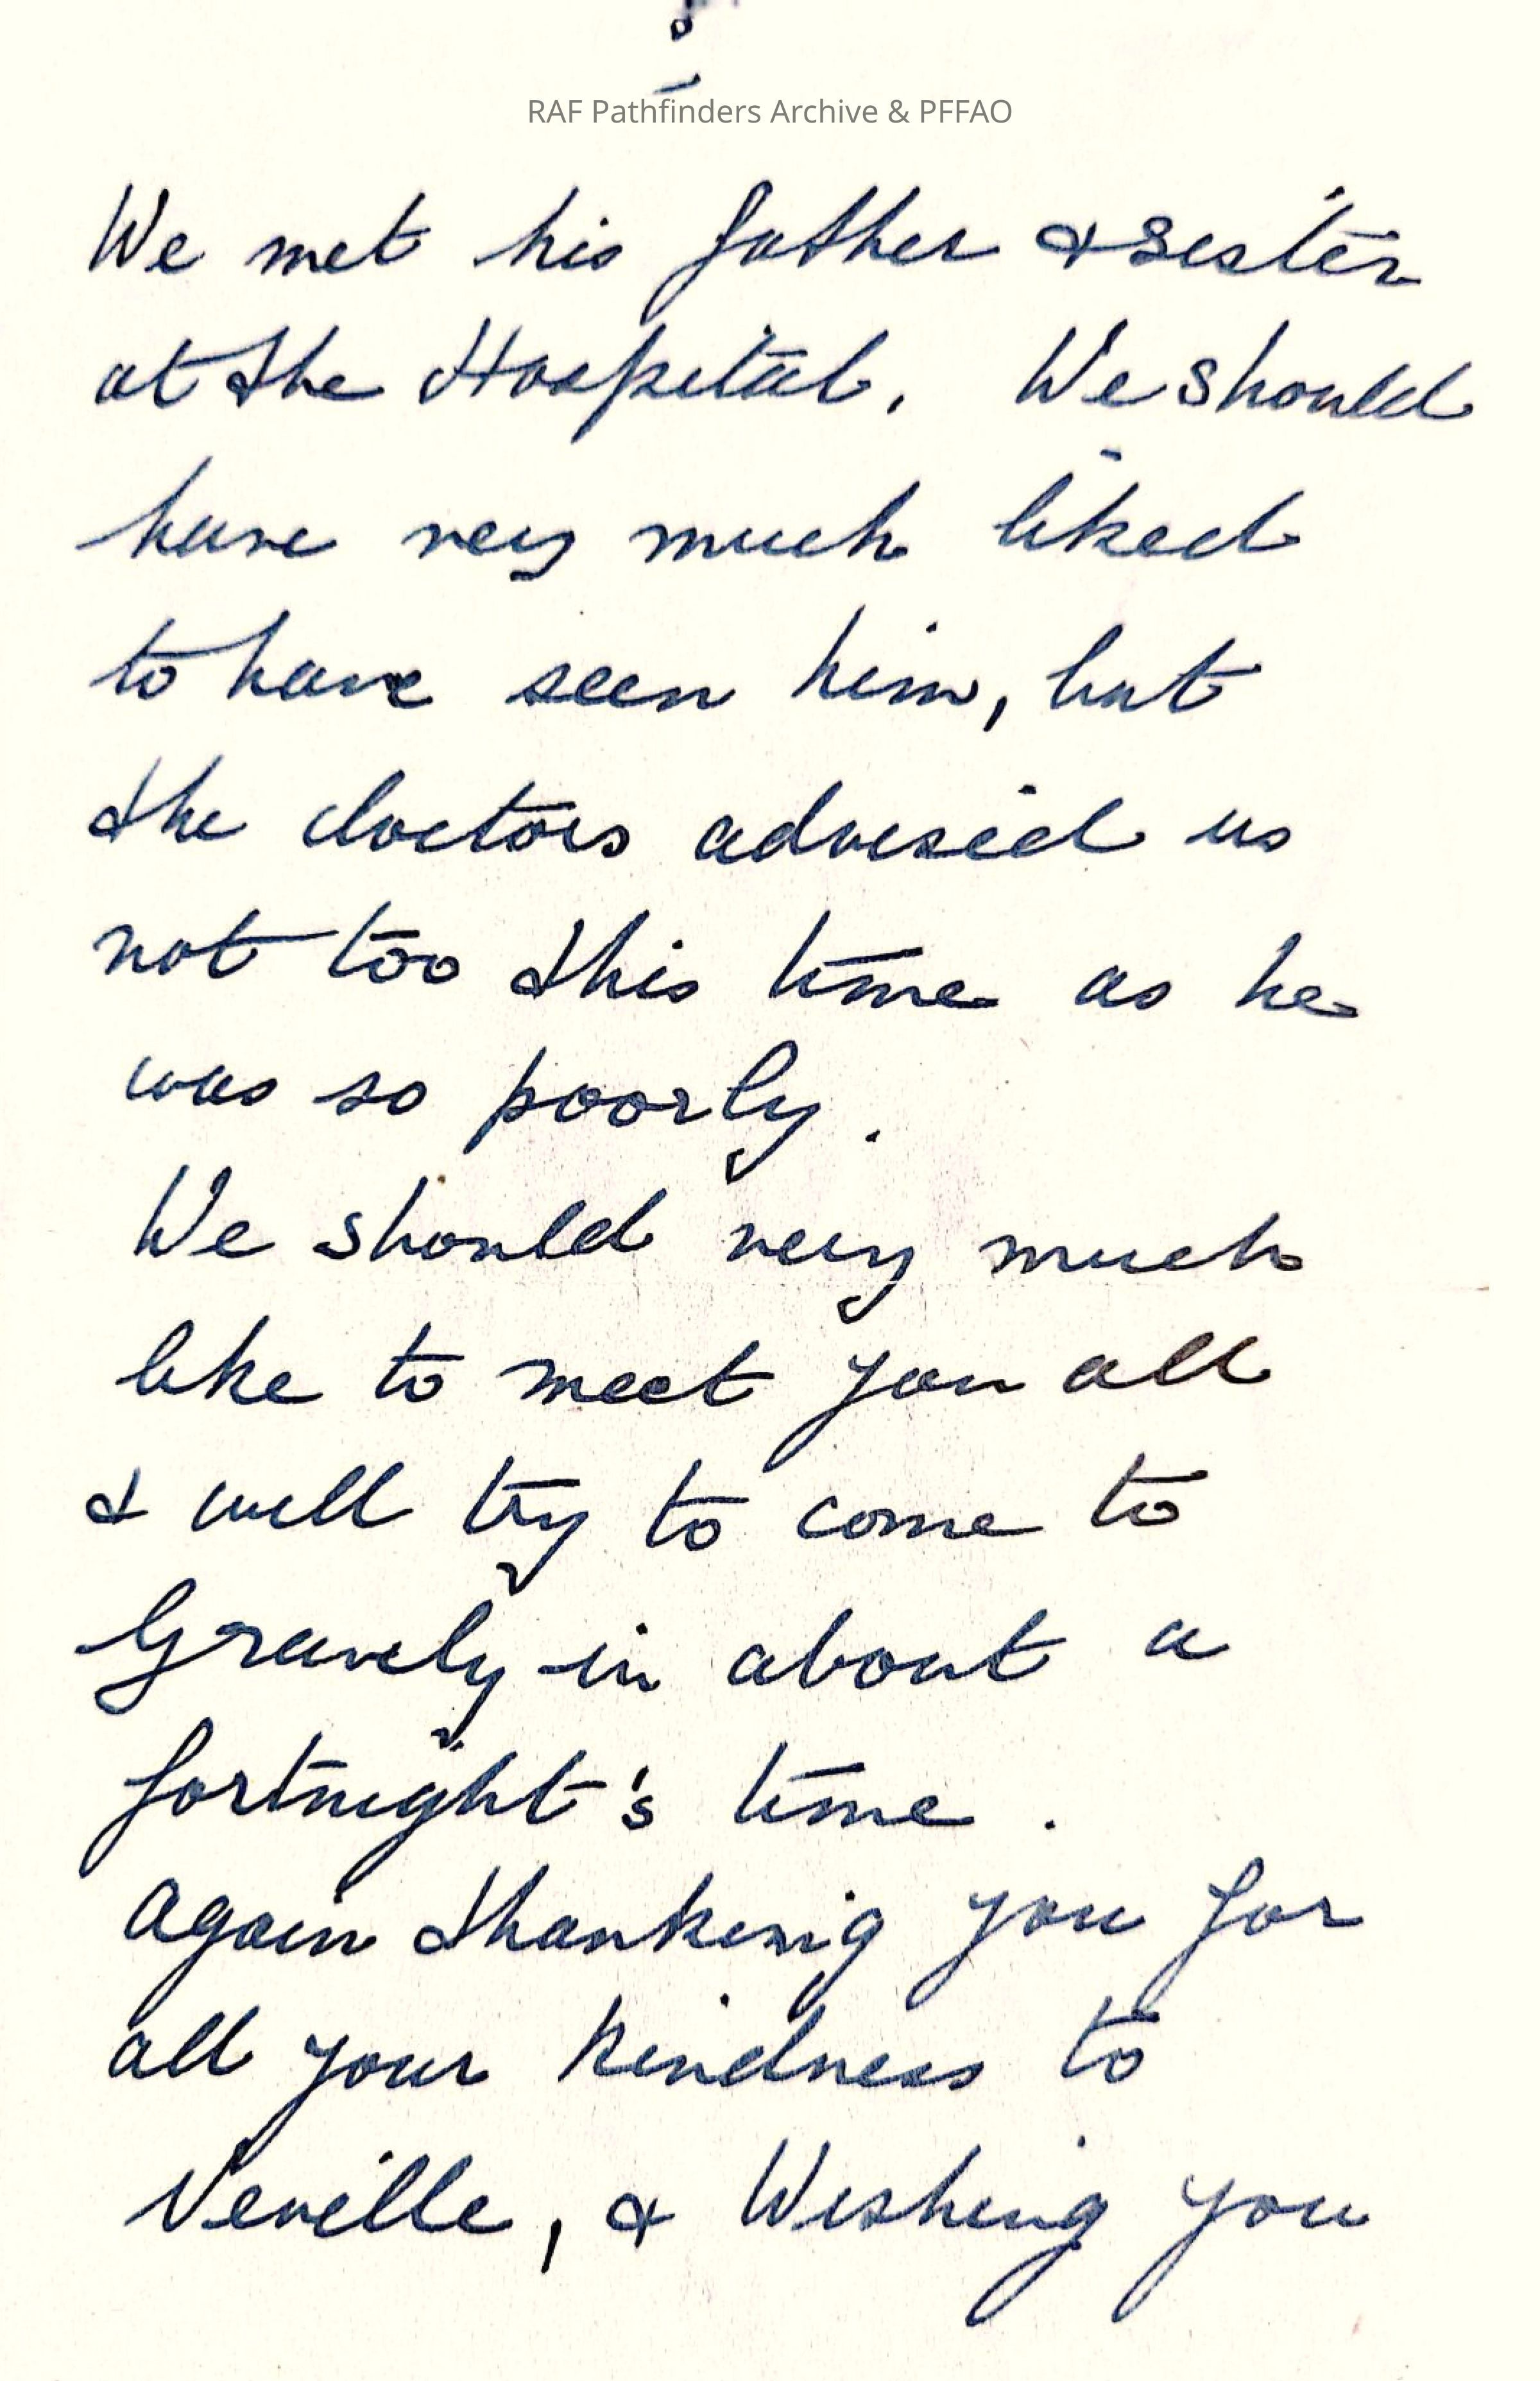 RAF Pathfinders Archive & PFFAO
We met his father & Sister
at the Hospital. We should
have very much liked
to have seen him, but
the doctors advised us
not too this time as he
was so poorly.
We should very much
like to meet you all
& will try to come to
Gravely in about a
fortnight's time.
Again thanking you for
all your kindness to
Neville, & Wishing you